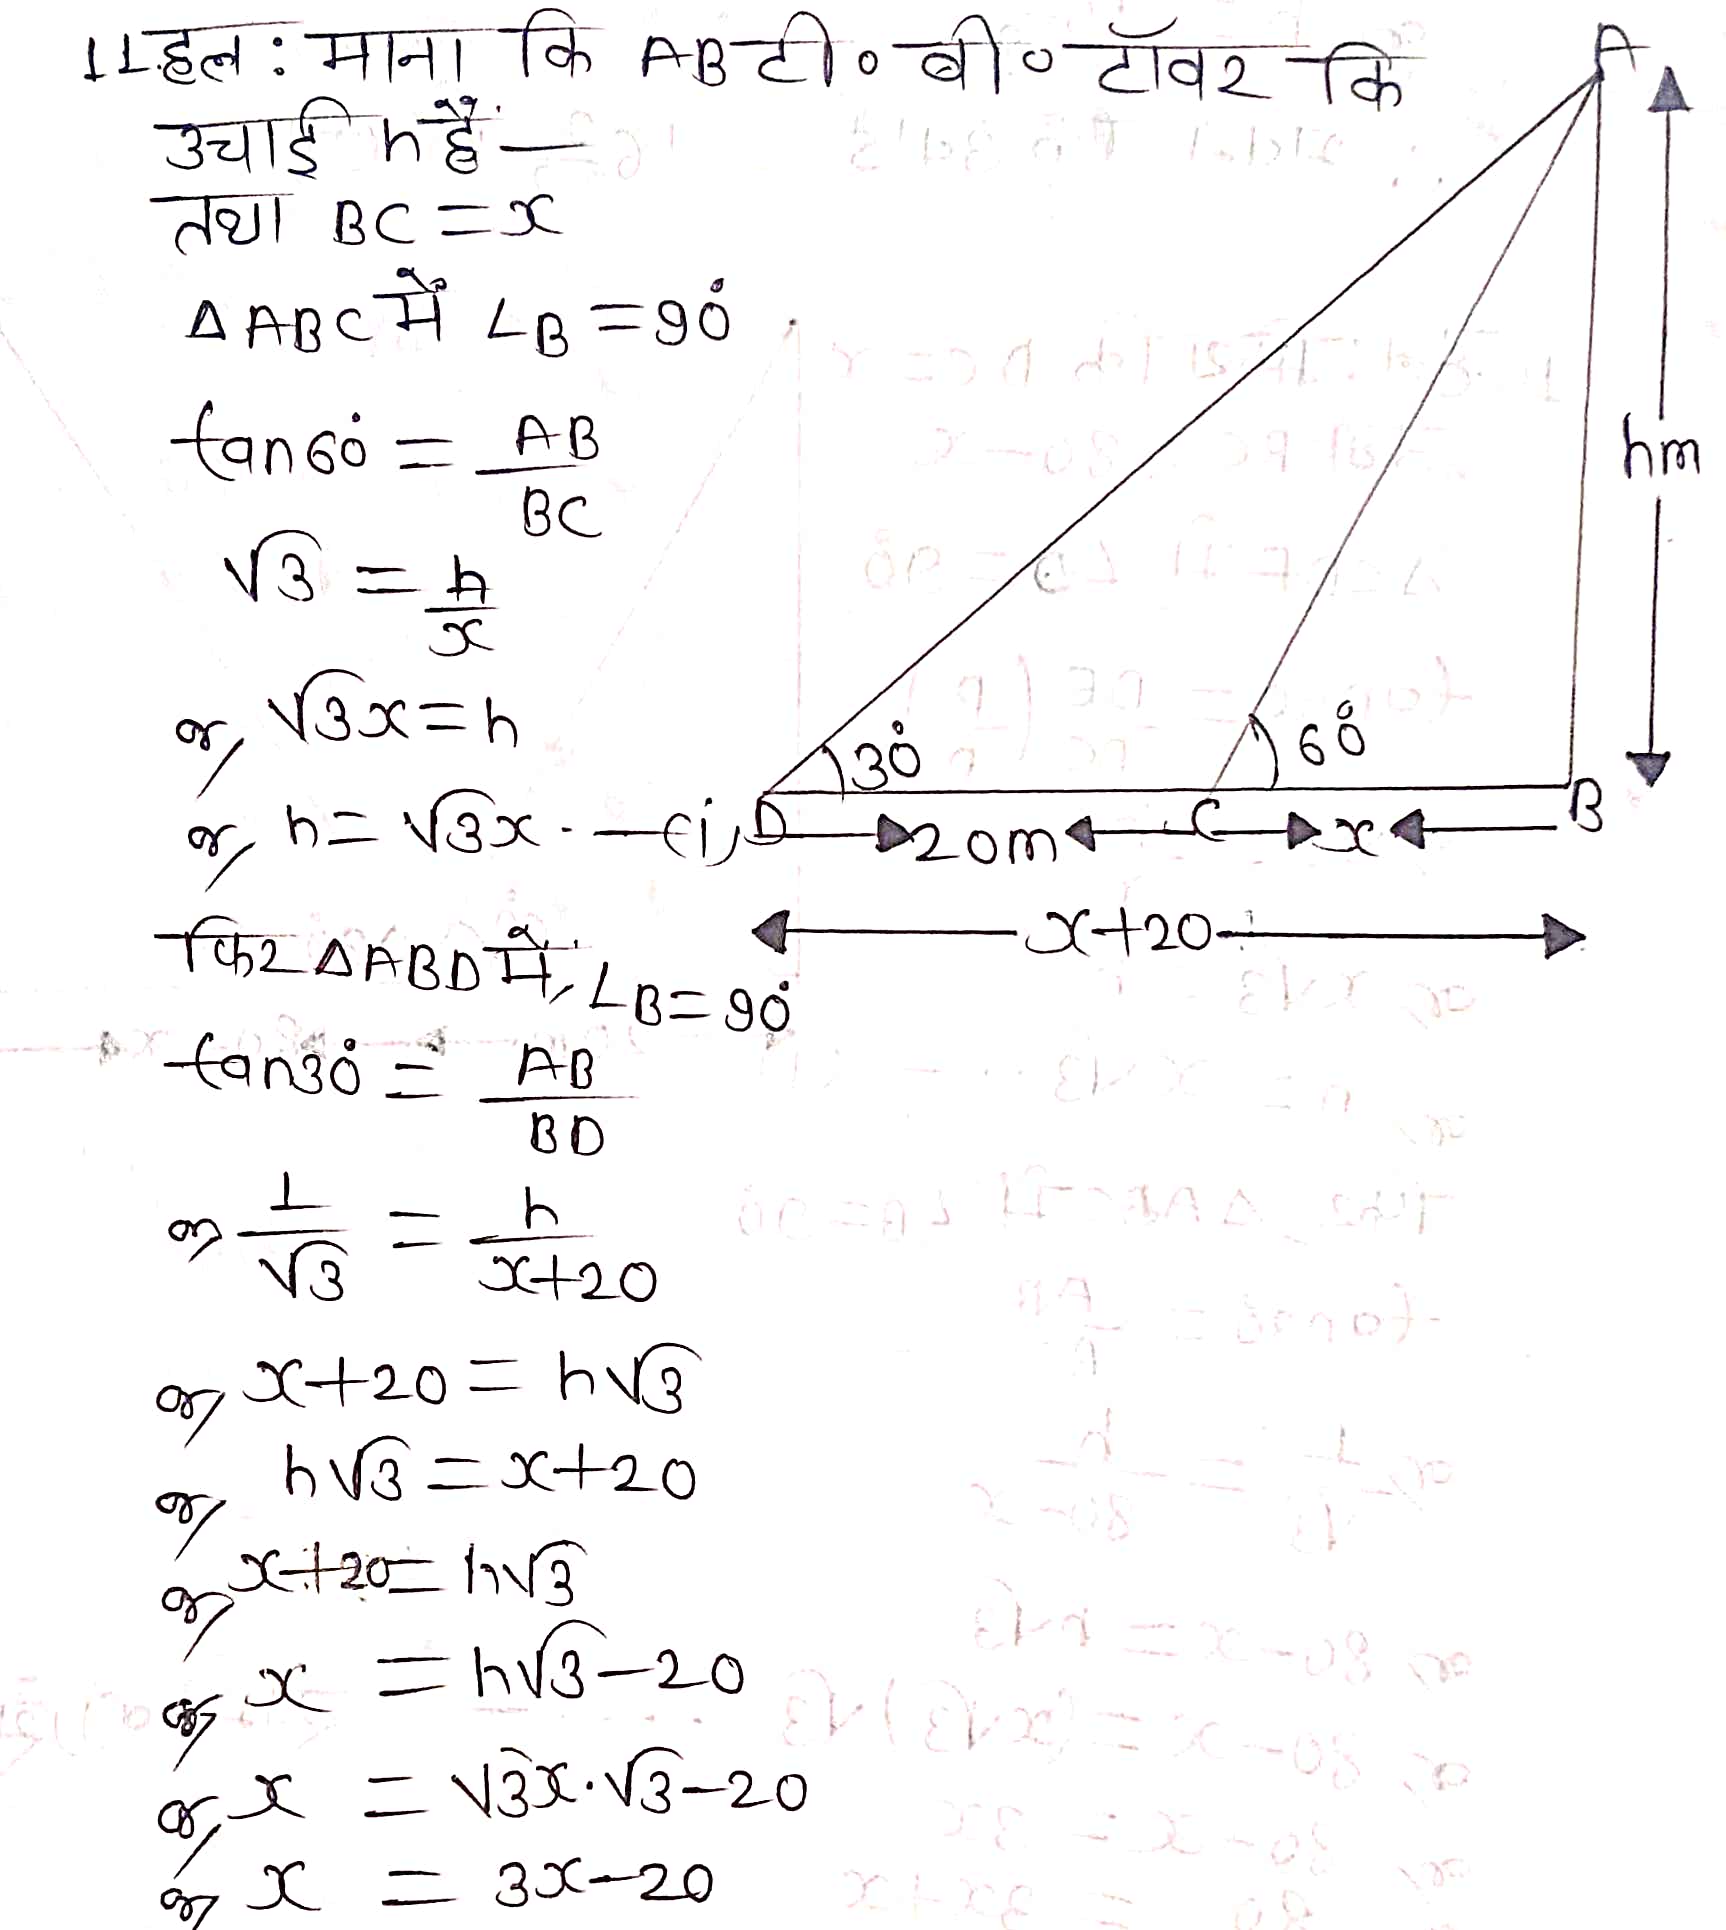 11.हल : माना कि AB टी० बी० टॉवर कि
उचाई h हैं —
तथा BC = x
Δ ABC में ∠B = 90°
tan60° = AB/BC
√3 = h/x
or, √3x = h
or, h = √3x - —(i)
फिर Δ ABD में, ∠B = 90°
tan30° = AB/BD
or, 1/√3 = h/x+20
or, x+20 = h√3
or, h√3 = x+20
or, x+20 = h√3
or, x = h√3-20
or, x = √3x.√3-20
or, x = 3x-20
A
hm
30°
60°
D 20m C x B
x+20